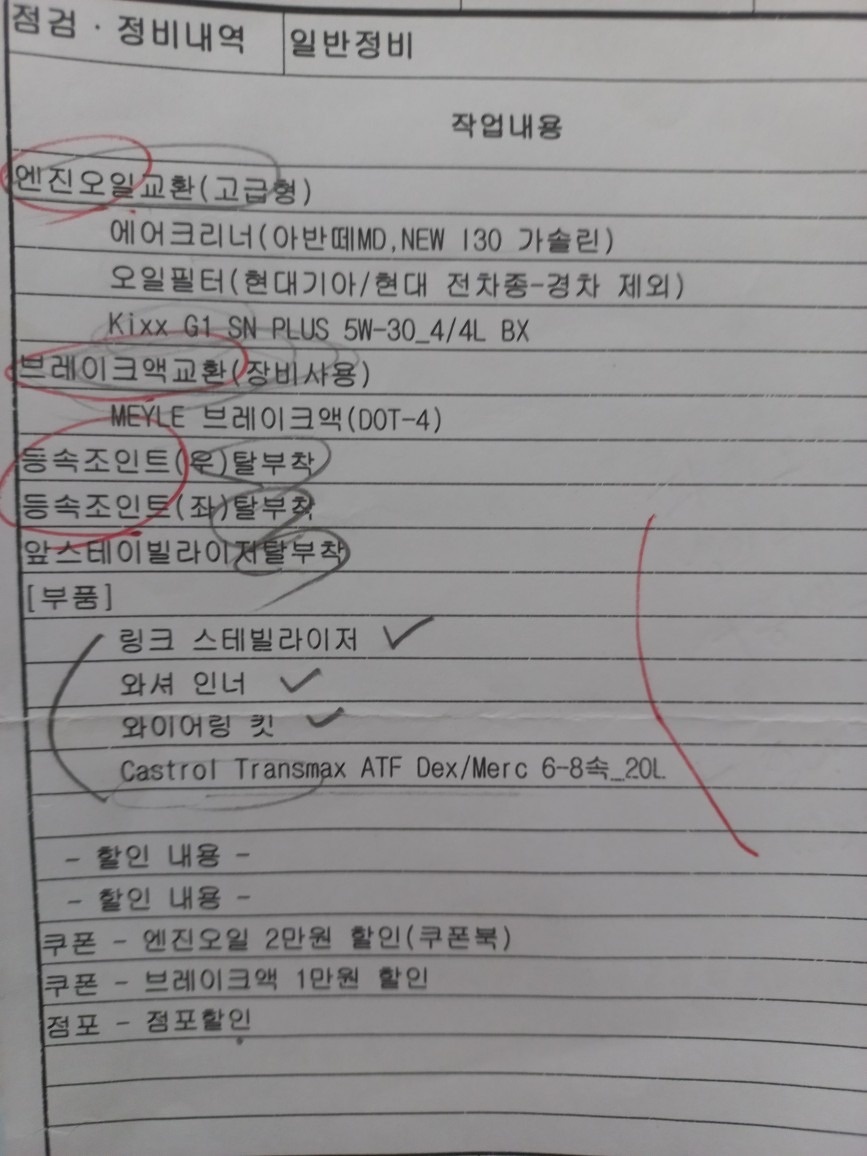 점검 · 정비내역 일반정비
작업내용
엔진오일교환(고급형)
에어크리너(아반떼MD,NEW I30 가솔린)
오일필터(현대기아/현대 전차종-경차 제외)
Kixx G1 SN PLUS 5W-30_4/4L BX
브레이크액교환(장비사용)
MEYLE 브레이크액(DOT-4)
등속조인트(우)탈부착
등속조인트(좌)탈부착
앞스테이빌라이저탈부착
[부품]
링크 스테빌라이저
와셔 인너
와이어링 킷
Castrol Transmax ATF Dex/Merc 6-8속_20L
- 할인 내용 -
- 할인 내용 -
쿠폰 - 엔진오일 2만원 할인(쿠폰북)
쿠폰 - 브레이크액 1만원 할인
점포 - 점포할인